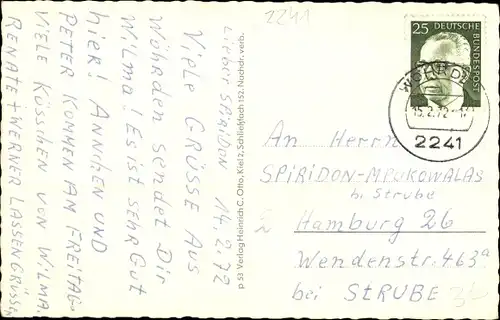 2241
Lieber SPIRIDON 14.2.72
Viele GRÜSSE AUS
Wöhrden sendet Dir
Wilma! Es ist sehr Gut
hier! ANNCHEN UND
PETER KOMMEN AM FREITAG.
VIELE KÜSSCHEN VON WILMA.
RENATE + WERNER LASSEN GRÜSSEN
p 53 Verlag Heinrich C. Otto, Kiel 2, Schließfach 152. Nachdr. verb.
25 DEUTSCHE BUNDESPOST
WÖHRDEN
15.2.72
2241
An Herrn
SPIRIDON-MPUKOWALAS
b. Strube
2 Hamburg 26
Wendenstr. 463a
bei STRUBE